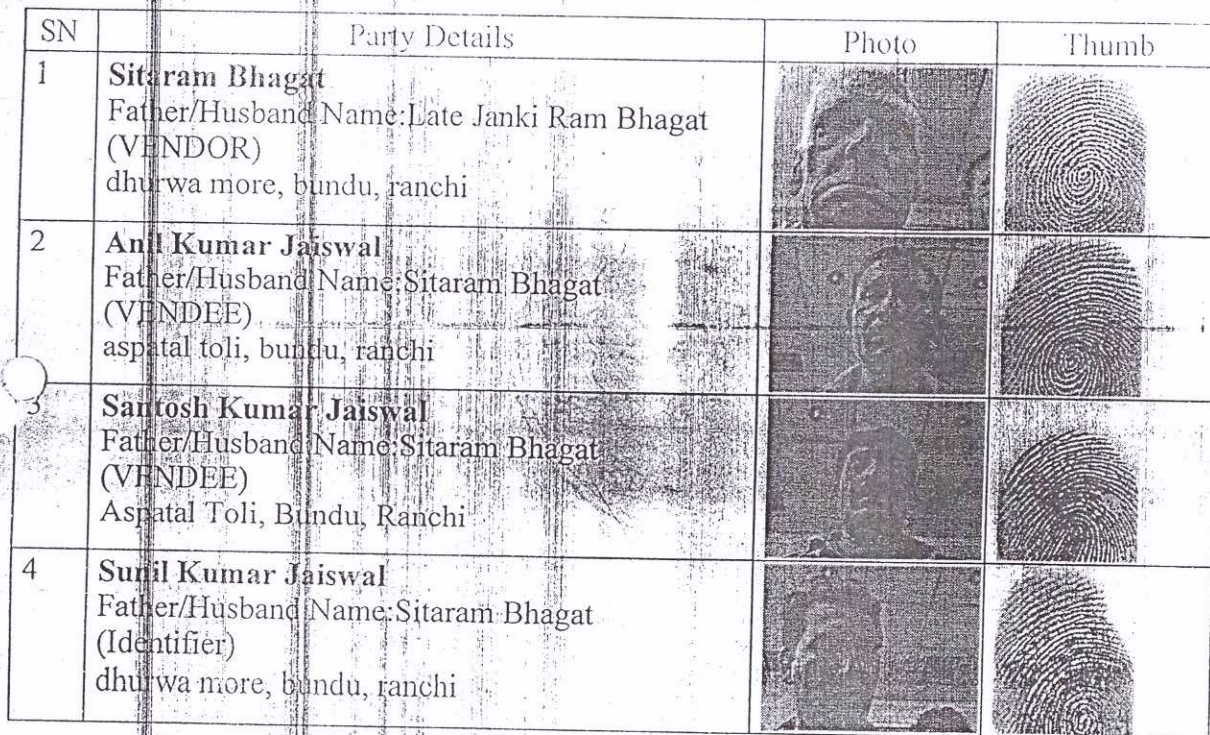 SN Party Details Photo Thumb
1 Sitaram Bhagat
Father/Husband Name:Late Janki Ram Bhagat
(VENDOR)
dhurwa more, bundu, ranchi
2 Anil Kumar Jaiswal
Father/Husband Name:Sitaram Bhagat
(VENDEE)
aspatal toli, bundu, ranchi
3 Santosh Kumar Jaiswal
Father/Husband Name:Sitaram Bhagat
(VENDEE)
Aspatal Toli, Bundu, Ranchi
4 Sunil Kumar Jaiswal
Father/Husband Name:Sitaram Bhagat
(Identifier)
dhurwa more, bundu, ranchi